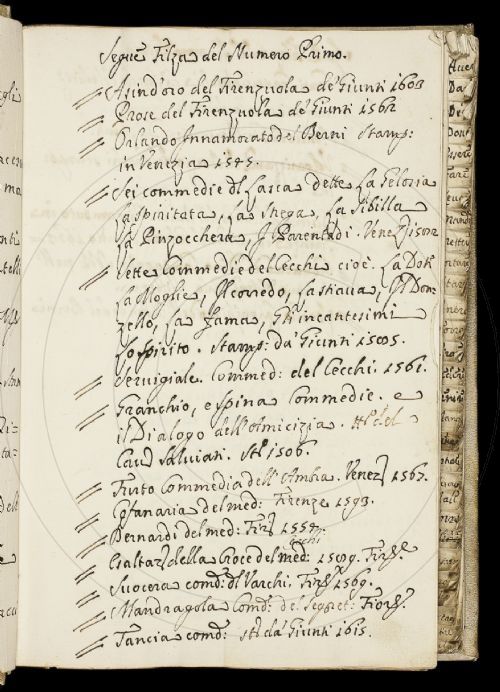 Segue Filza del Numero Primo.
Asin d'oro del Firenzuola de' Giunti 1603
Prose del Firenzuola de' Giunti 1562
Orlando Innamorato del Berni Stamp:
in Venezia 1545.
Sei commedie del Lasca dette La Gelosia
La Spiritata, La Strega, La Sibilla
La Pinzocchera, I Parentadi. Venez
Sette Commedie del Cecchi cioè. La Dote
La Moglie, Il Corredo, La Stiava, Il Don-
zello, Gli incantesimi
Lo Spirito. Stamp: da Giunti
Servigiale. Commed: del Cecchi. 1561.
Granchio, e Spina Commedie. e
il Dialogo dell'Amicizia. del
Cav Salviati. 1506.
Furto Commedia dell'Ambra. Venez 1567.
Cofanaria del med: Firenze 1593.
Bernardi del med: Fir
Cecchi
Esaltaz della Croce del med: 1589. Firze.
Suocera comd: del Varchi. Firze 1569.
Mandragola Comd: del Segret: Fior:
Tancia comd: da Giunti 1615.